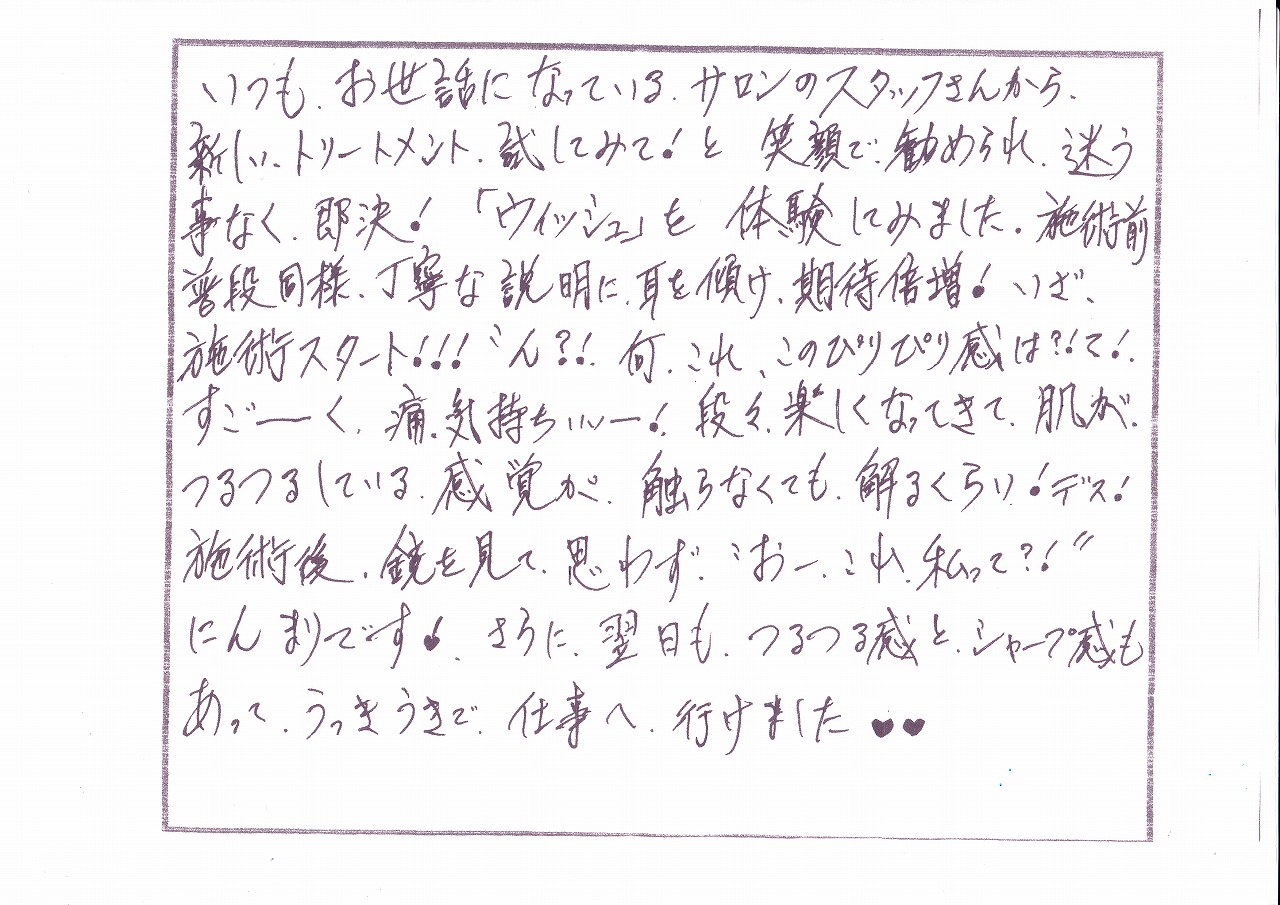 いつも、お世話になっている、サロンのスタッフさんから、
新しい、トリートメント、試してみて!と 笑顔で、勧められ、迷う
事なく、即決!「ウィッシュ」を 体験してみました。施術前
普段同様、丁寧な説明に、耳を傾け、期待倍増!いざ、
施術スタート!!!〝ん?!何、これ、このぴりぴり感は?!て!
すごーく、痛、気持ちいいー!段々、楽しくなってきて、肌が、
つるつるしている、感覚が、触らなくても、解るくらい!デス!
施術後、鏡を見て、思わず、〝おー、これ、私って?!〟
にんまりです!さらに、翌日も、つるつる感と、シャープ感も
あって、うっきうきで、仕事へ、行けました♥♥